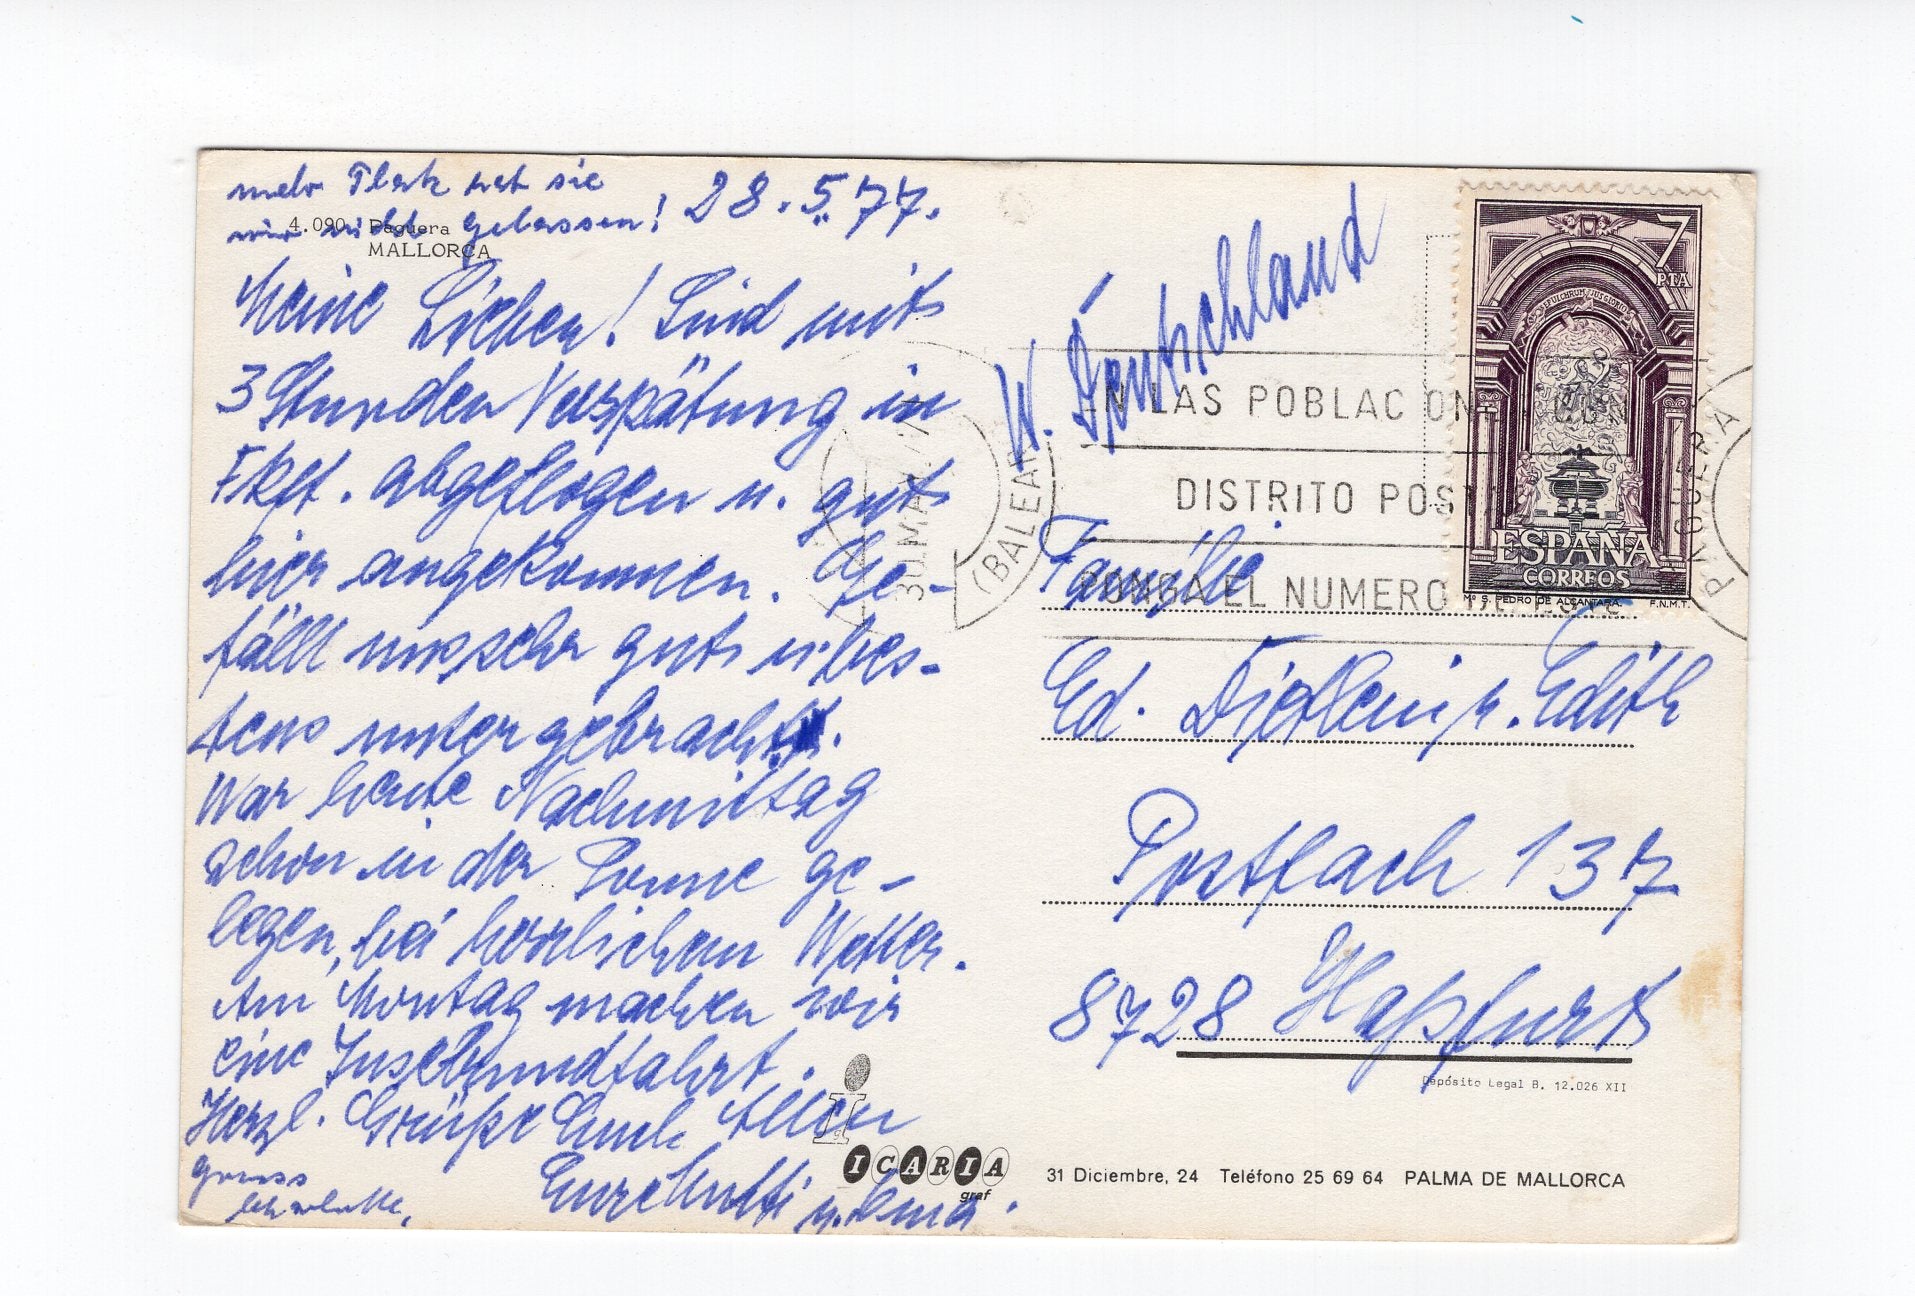 mehr Platz hat sie
mir nicht gelassen! 28.5.77.
4.090 Paguera
MALLORCA
Meine Lieben! Sind mit
3 Stunden Verspätung in
Frkft. abgeflogen u. gut
hier angekommen. Ge-
fällt uns sehr gut u. bes-
tens untergebracht.
War heute Nachmittag
schon in der Sonne ge-
legen, bei herrlichem Wetter.
Am Montag machen wir
eine Inselrundfahrt.
Herzl. Grüße Euch Allen
Eure Mutti u. Oma.
Gruss
W. Deutschland
Familie
Ed. Dietlein u. Edith
Postfach 137
8728 Haßfurt
7
PTA
ESPAÑA
CORREOS
Mº S. PEDRO DE ALCANTARA. F.N.M.T.
EN LAS POBLACIONES CON
DISTRITO POSTAL
PONGA EL NUMERO DE ESTE
30 MAY. 77
(BALEAR
PAGUERA
Depósito Legal B. 12.026 XII
ICARIA
graf
31 Diciembre, 24 Teléfono 25 69 64 PALMA DE MALLORCA